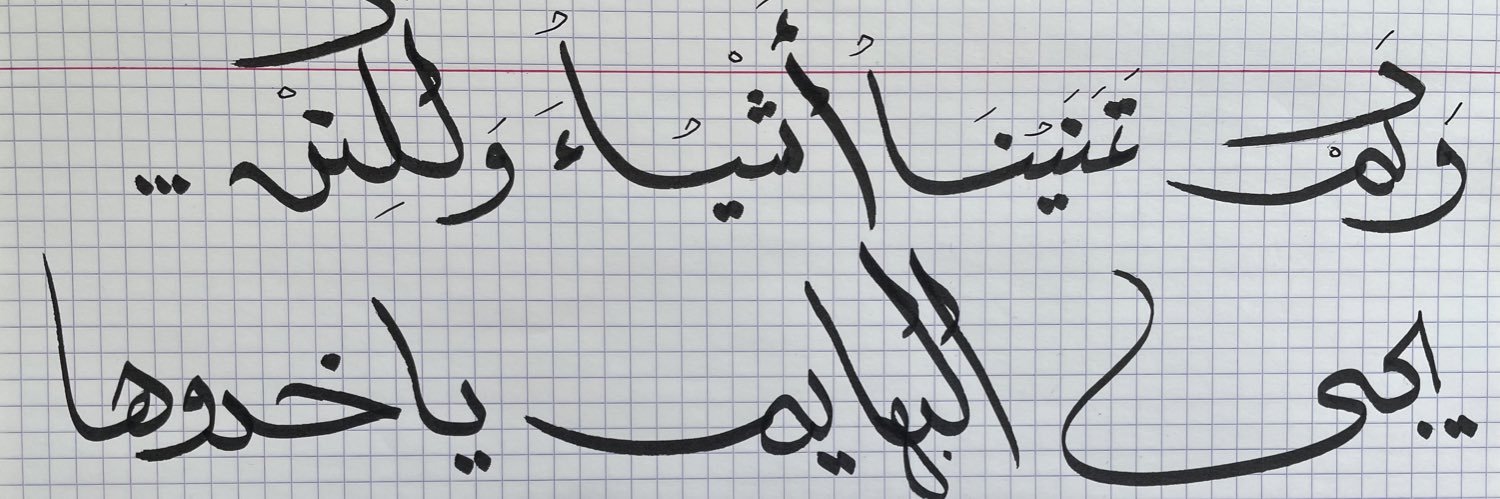 وَكَمْ تَمَنَيْنَا أَشْيَاءَ وَلَكِنْ ...
يجى البهايم ياخدوها